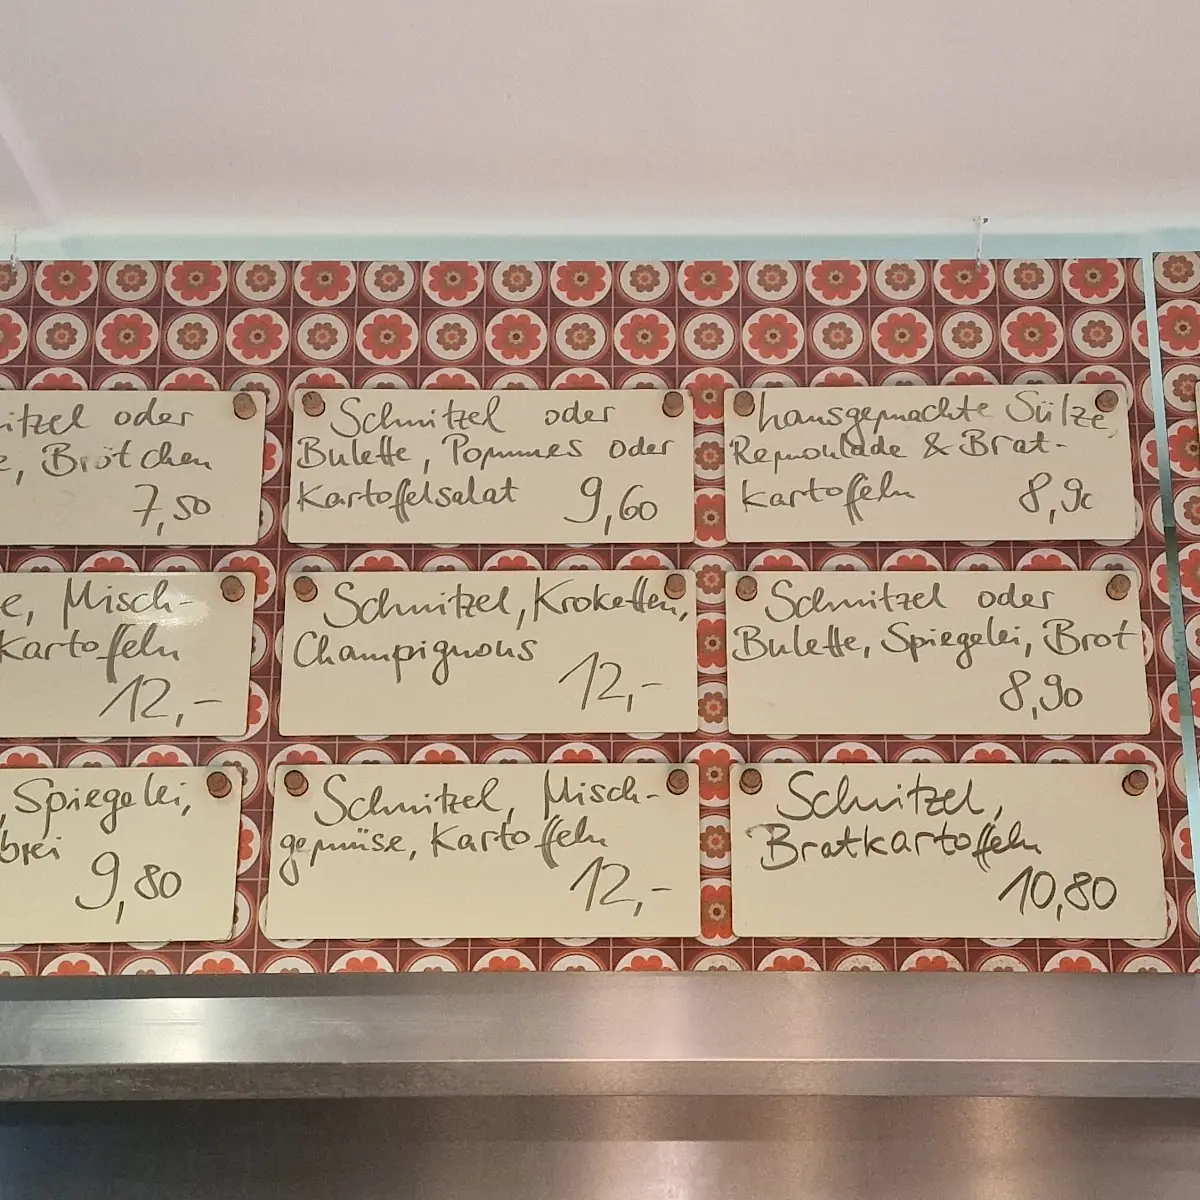 oder
Brötchen
7,50
Schnitzel oder
Bulette, Pommes oder
Kartoffelsalat 9,60
hausgemachte Sülze,
Remoulade & Brat-
kartoffeln 8,90
Misch-
Kartoffeln
12,-
Schnitzel, Kroketten,
Champignons
12,-
Schnitzel oder
Bulette, Spiegelei, Brot
8,90
Spiegelei,
brei
9,80
Schnitzel, Misch-
gemüse, Kartoffeln
12,-
Schnitzel,
Bratkartoffeln
10,80